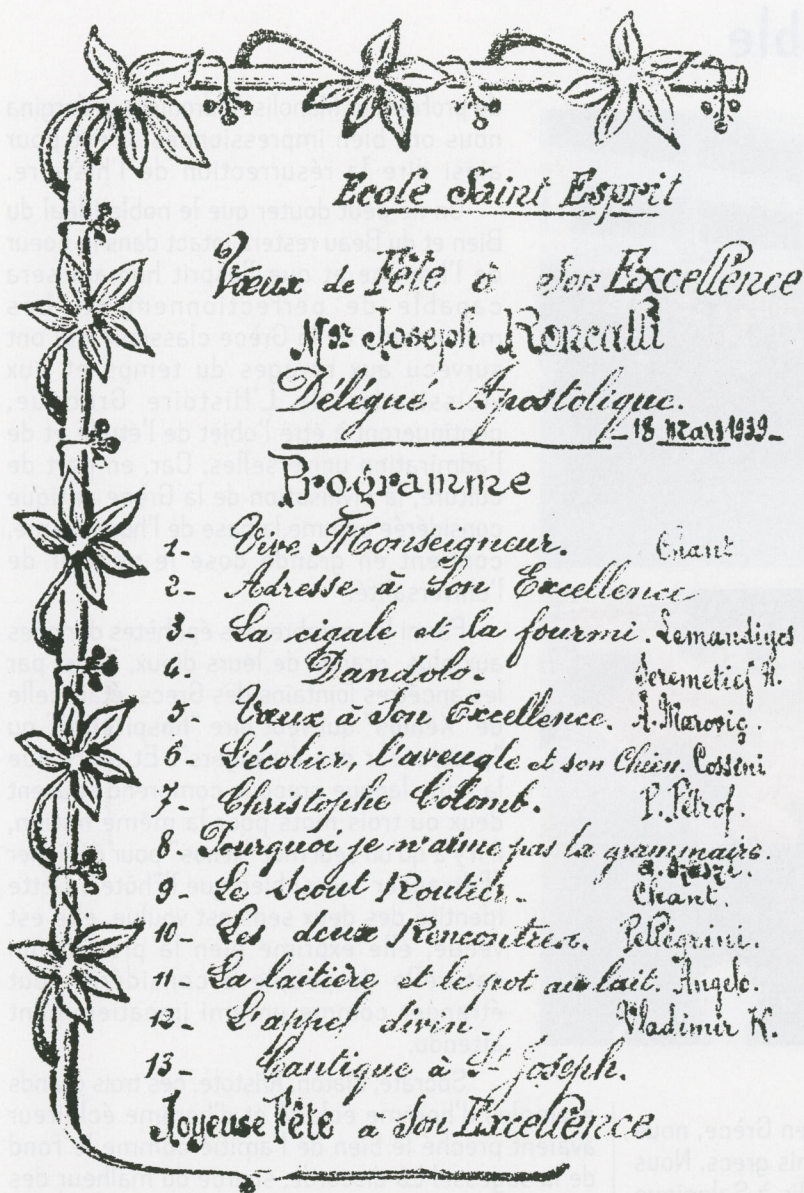 Ecole Saint Esprit
Vœux de Fête à Son Excellence
Mgr Joseph Roncalli
Délégué Apostolique.
- 18 Mars 1939 -
Programme
1- Vive Monseigneur. Chant
2- Adresse à Son Excellence
3- La cigale et la fourmi. Lemandiges
4- Dandolo. Seremetief N.
5- Vœux à Son Excellence. A. Marovig.
6- L'écolier, l'aveugle et son Chien. Cossini
7- Christophe Colomb. P. Petrof.
8- Pourquoi je n'aime pas la grammaire.
9- Le Scout Routier. Chant.
10- Les deux Rencontres. Pellégrini.
11- La laitière et le pot au lait. Angelo.
12- L'appel divin. Vladimir K.
13- Cantique à St Joseph.
Joyeuse Fête à Son Excellence